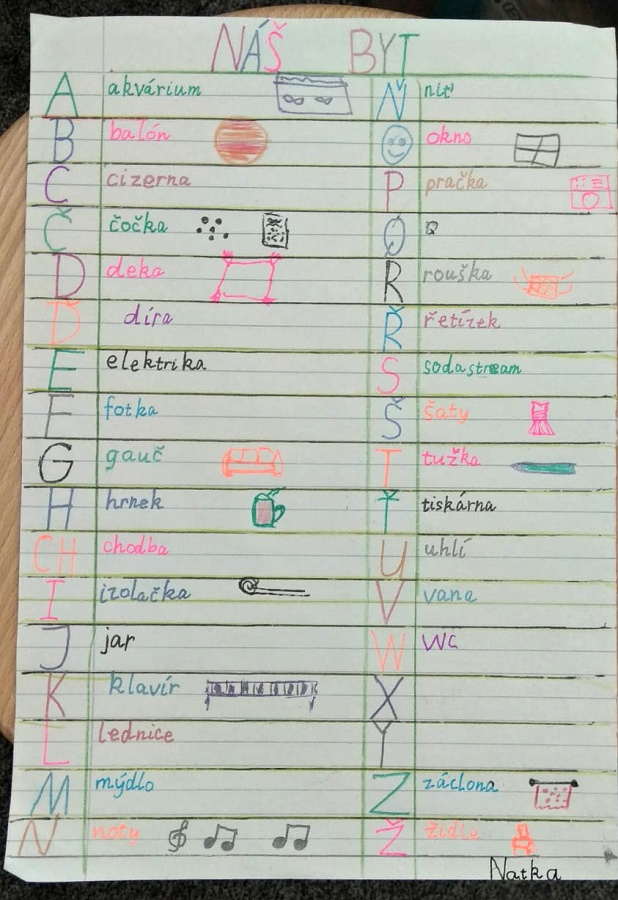 NÁŠ BYT
A akvárium
B balón
C cizerna
Č čočka
D deka
Ď díra
E elektrika
F fotka
G gauč
H hrnek
CH chodba
I izolačka
J jar
K klavír
L lednice
M mýdlo
N noty
Ň niť
O okno
P pračka
Q Q
R rouška
Ř řetízek
S sodastream
Š šaty
T tužka
Ť tiskárna
U uhlí
V vana
W WC
X
Y
Z záclona
Ž židle
Natka